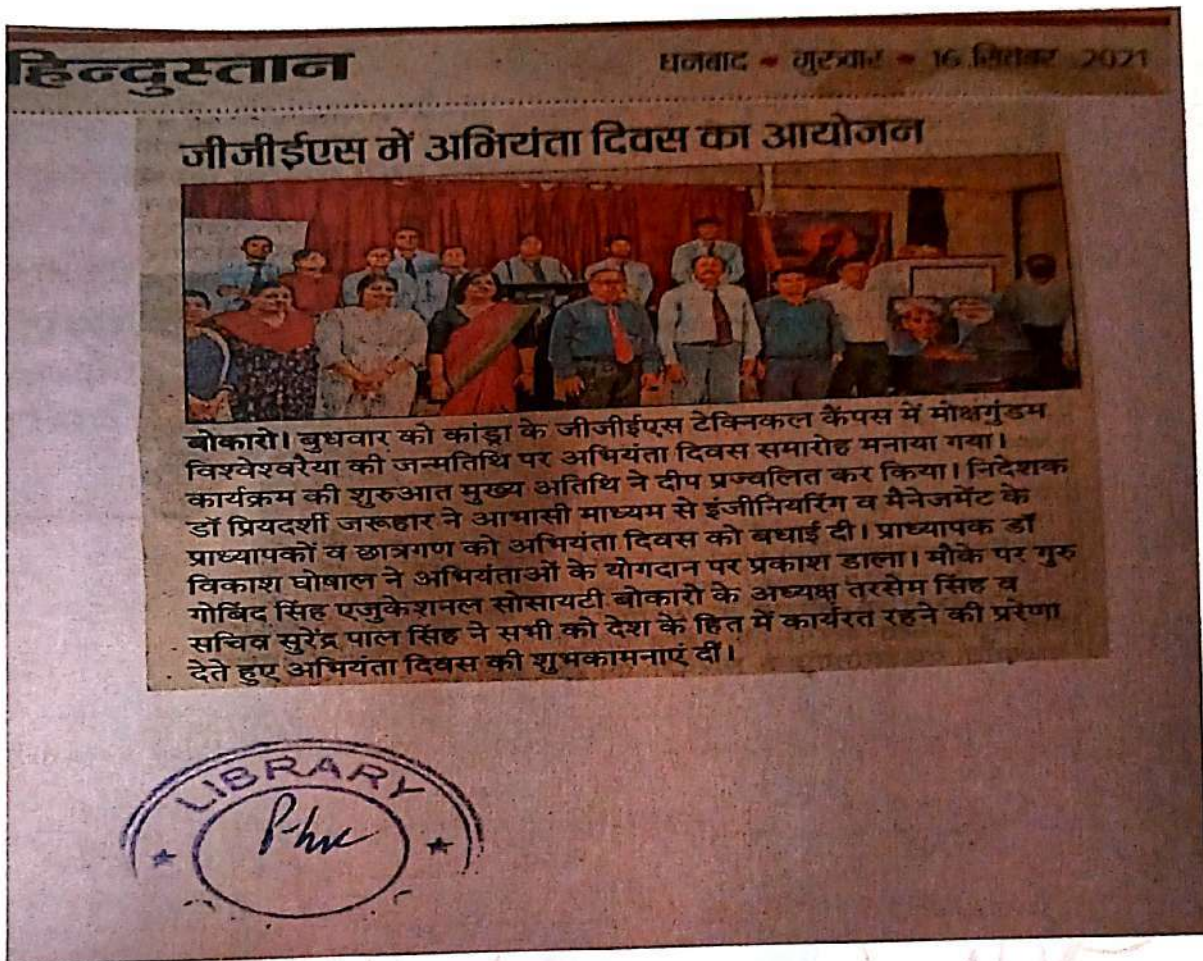 हिन्दुस्तान
धनबाद • गुरुवार • 16 सितंबर 2021
जीजीईएस में अभियंता दिवस का आयोजन
बोकारो। बुधवार को कांड्रा के जीजीईएस टेक्निकल कैंपस में मोक्षगुंडम
विश्वेश्वरैया की जन्मतिथि पर अभियंता दिवस समारोह मनाया गया।
कार्यक्रम की शुरुआत मुख्य अतिथि ने दीप प्रज्वलित कर किया। निदेशक
डॉ प्रियदर्शी जरूहार ने आभासी माध्यम से इंजीनियरिंग व मैनेजमेंट के
प्राध्यापकों व छात्रगण को अभियंता दिवस को बधाई दी। प्राध्यापक डॉ
विकाश घोषाल ने अभियंताओं के योगदान पर प्रकाश डाला। मौके पर गुरु
गोबिंद सिंह एजुकेशनल सोसायटी बोकारो के अध्यक्ष तरसेम सिंह व
सचिव सुरेंद्र पाल सिंह ने सभी को देश के हित में कार्यरत रहने की प्ररेणा
देते हुए अभियंता दिवस की शुभकामनाएं दीं।
LIBRARY